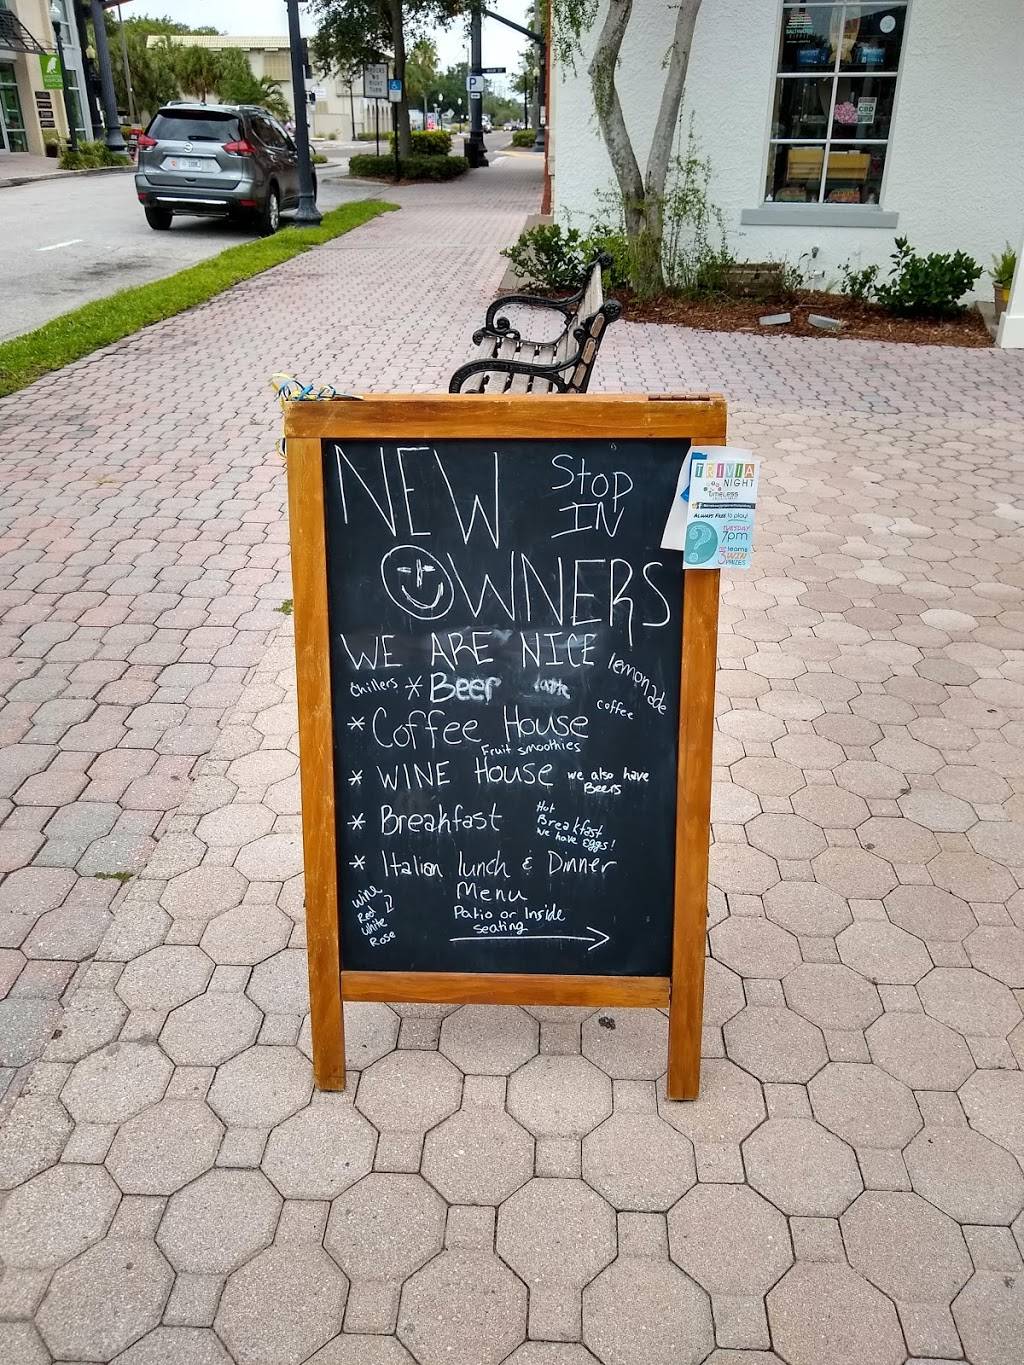 NEW
Stop
IN
OWNERS
WE ARE NICE
lemonade
Chillers * Beer latte
Coffee
* Coffee House
Fruit smoothies
* WINE House we also have
Beers
* Breakfast
Hot
Breakfast
we have Eggs!
* Italian lunch & Dinner
Menu
wine
Red
White
Rose
Patio or Inside
seating
TRIVIA
NIGHT
timeless
ALWAYS FREE to play!
TUESDAY
7pm
?
teams
3 WIN
PRIZES
SALTWATER
HIPPIE
CBD
P